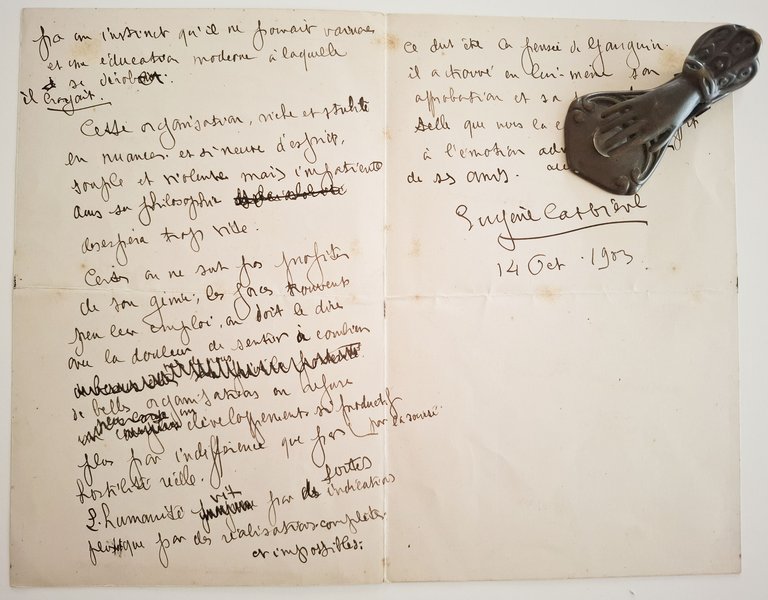 par un instinct qu'il ne pouvait vaincre
et une éducation moderne à laquelle
il croyait se dérober.
Cette organisation, riche et subtile
en nuances et si neuve d'esprit,
souple et violente mais impatiente
dans sa philosophie
désespéra trop vite.
Certes on ne sut pas profiter
de son génie, les forces trouvent
peu leur emploi, on doit le dire
avec la douleur de sentir à combien
de belles organisations on refuse
un développement si productif
plus par indifférence que par
par la sourde
hostilité réelle.
L'humanité vit par de fortes indications
plus que par des réalisations complètes
et impossibles.
Ce dut être la pensée de Gauguin.
il a trouvé en lui même son
approbation et sa
telle que nous la
à l'émotion
de ses amis.
Eugène Carrière
14 Oct. 1903